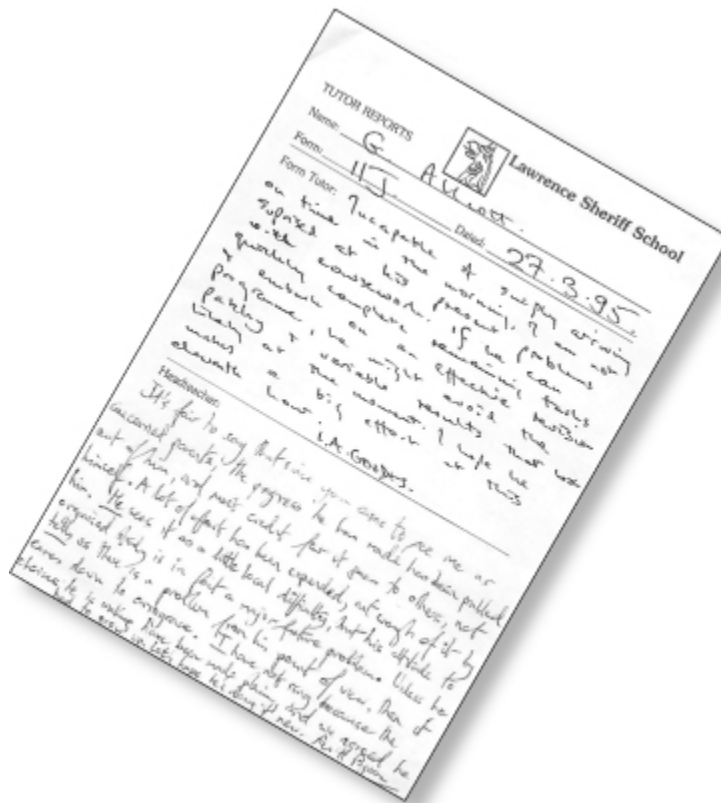 TUTOR REPORTS
Lawrence Sheriff School
Name: G. Allcott.
Form: 11J. Dated: 27.3.95.
Form Tutor: Incapable of simply arriving
on time in the morning, I am not
suprised at his present problems
with coursework. If he can
quickly complete remaining tasks
& embark on an effective revision
programme, he might avoid the
patchy & variable results that look
likely at the moment. I hope he
makes a big effort at this
eleventh hour.
Headteacher:
It's fair to say that since you came to see me as
concerned parents, the progress he has made has been pulled
out of him, and most credit for it goes to others, not
himself. A lot of effort has been expended, not enough of it by
him. He sees it as a little local difficulty, but his attitude to
organised study is in fact a major future problem. Unless he
tells us there is a problem from his point of view, then it
comes down to arrogance. I have not rung because the
choices he is making have been made plain, and we agreed he
had to grow up. Let's hope he's doing it now.